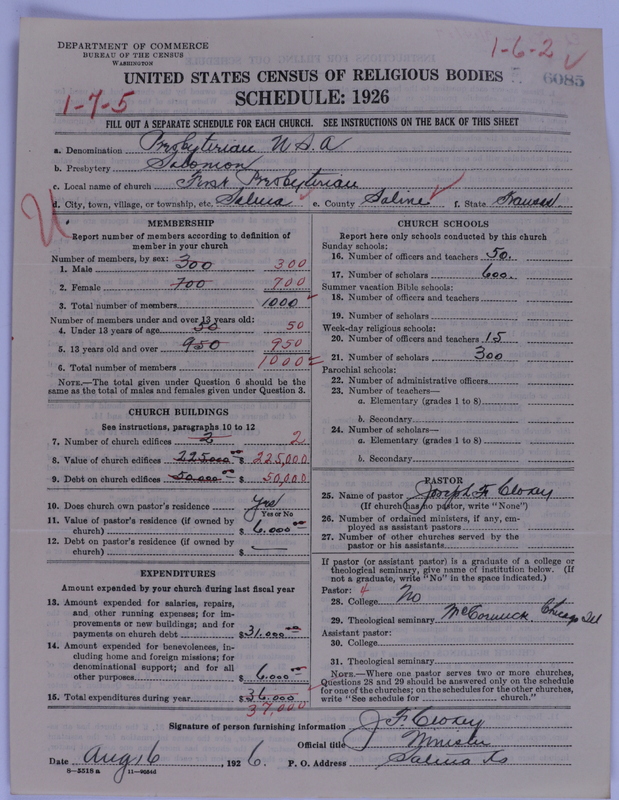 DEPARTMENT OF COMMERCE
BUREAU OF THE CENSUS
WASHINGTON
1-6-2
6085
UNITED STATES CENSUS OF RELIGIOUS BODIES
1-7-5
SCHEDULE: 1926
FILL OUT A SEPARATE SCHEDULE FOR EACH CHURCH. SEE INSTRUCTIONS ON THE BACK OF THIS SHEET
a. Denomination Presbyterian U.S.A
b. Presbytery Solomon
c. Local name of church First Presbyterian
d. City, town, village, or township, etc. Salina e. County Saline f. State Kansas
MEMBERSHIP
Report number of members according to definition of
member in your church
Number of members, by sex:
1. Male 300 300
2. Female 700 700
3. Total number of members 1000
Number of members under and over 13 years old:
4. Under 13 years of age 50 50
5. 13 years old and over 950 950
6. Total number of members 1000
NOTE.—The total given under Question 6 should be the
same as the total of males and females given under Question 3.
CHURCH BUILDINGS
See instructions, paragraphs 10 to 12
7. Number of church edifices 2 2
8. Value of church edifices 225000.00 $ 225,000
9. Debt on church edifices 50.000.00 $ 50,000
10. Does church own pastor's residence? Yes
Yes or No
11. Value of pastor's residence (if owned by
church) $ 6.000.00
12. Debt on pastor's residence (if owned by
church) $ —
EXPENDITURES
Amount expended by your church during last fiscal year
13. Amount expended for salaries, repairs,
and other running expenses; for im-
provements or new buildings; and for
payments on church debt $ 31.000.00
14. Amount expended for benevolences, in-
cluding home and foreign missions; for
denominational support; and for all
other purposes $ 6.000.00
15. Total expenditures during year $ 36.000
37,000
CHURCH SCHOOLS
Report here only schools conducted by this church
Sunday schools:
16. Number of officers and teachers 50.
17. Number of scholars 600.
Summer vacation Bible schools:
18. Number of officers and teachers
19. Number of scholars
Week-day religious schools:
20. Number of officers and teachers 15
21. Number of scholars 300
Parochial schools:
22. Number of administrative officers
23. Number of teachers—
a. Elementary (grades 1 to 8)
b. Secondary
24. Number of scholars—
a. Elementary (grades 1 to 8)
b. Secondary
PASTOR
25. Name of pastor Joseph F Clokey
(If church has no pastor, write "None")
26. Number of ordained ministers, if any, em-
ployed as assistant pastors
27. Number of other churches served by the
pastor or his assistants
If pastor (or assistant pastor) is a graduate of a college or
theological seminary, give name of institution below. (If
not a graduate, write "No" in the space indicated.)
Pastor:
28. College No
29. Theological seminary McCormick. Chicago Ill
Assistant pastor:
30. College
31. Theological seminary
NOTE.—Where one pastor serves two or more churches,
Questions 28 and 29 should be answered only on the schedule
for one of the churches; on the schedules for the other churches,
write "See schedule for church."
Signature of person furnishing information J F Clokey
Official title Minister
Date Aug 16, 1926. P. O. Address Salina Ks
8-5518 a